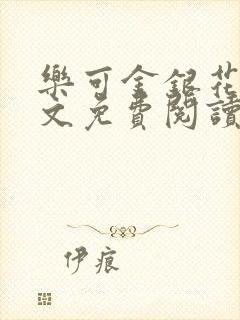 樂可金銀花
文免費閱讀
伊痕